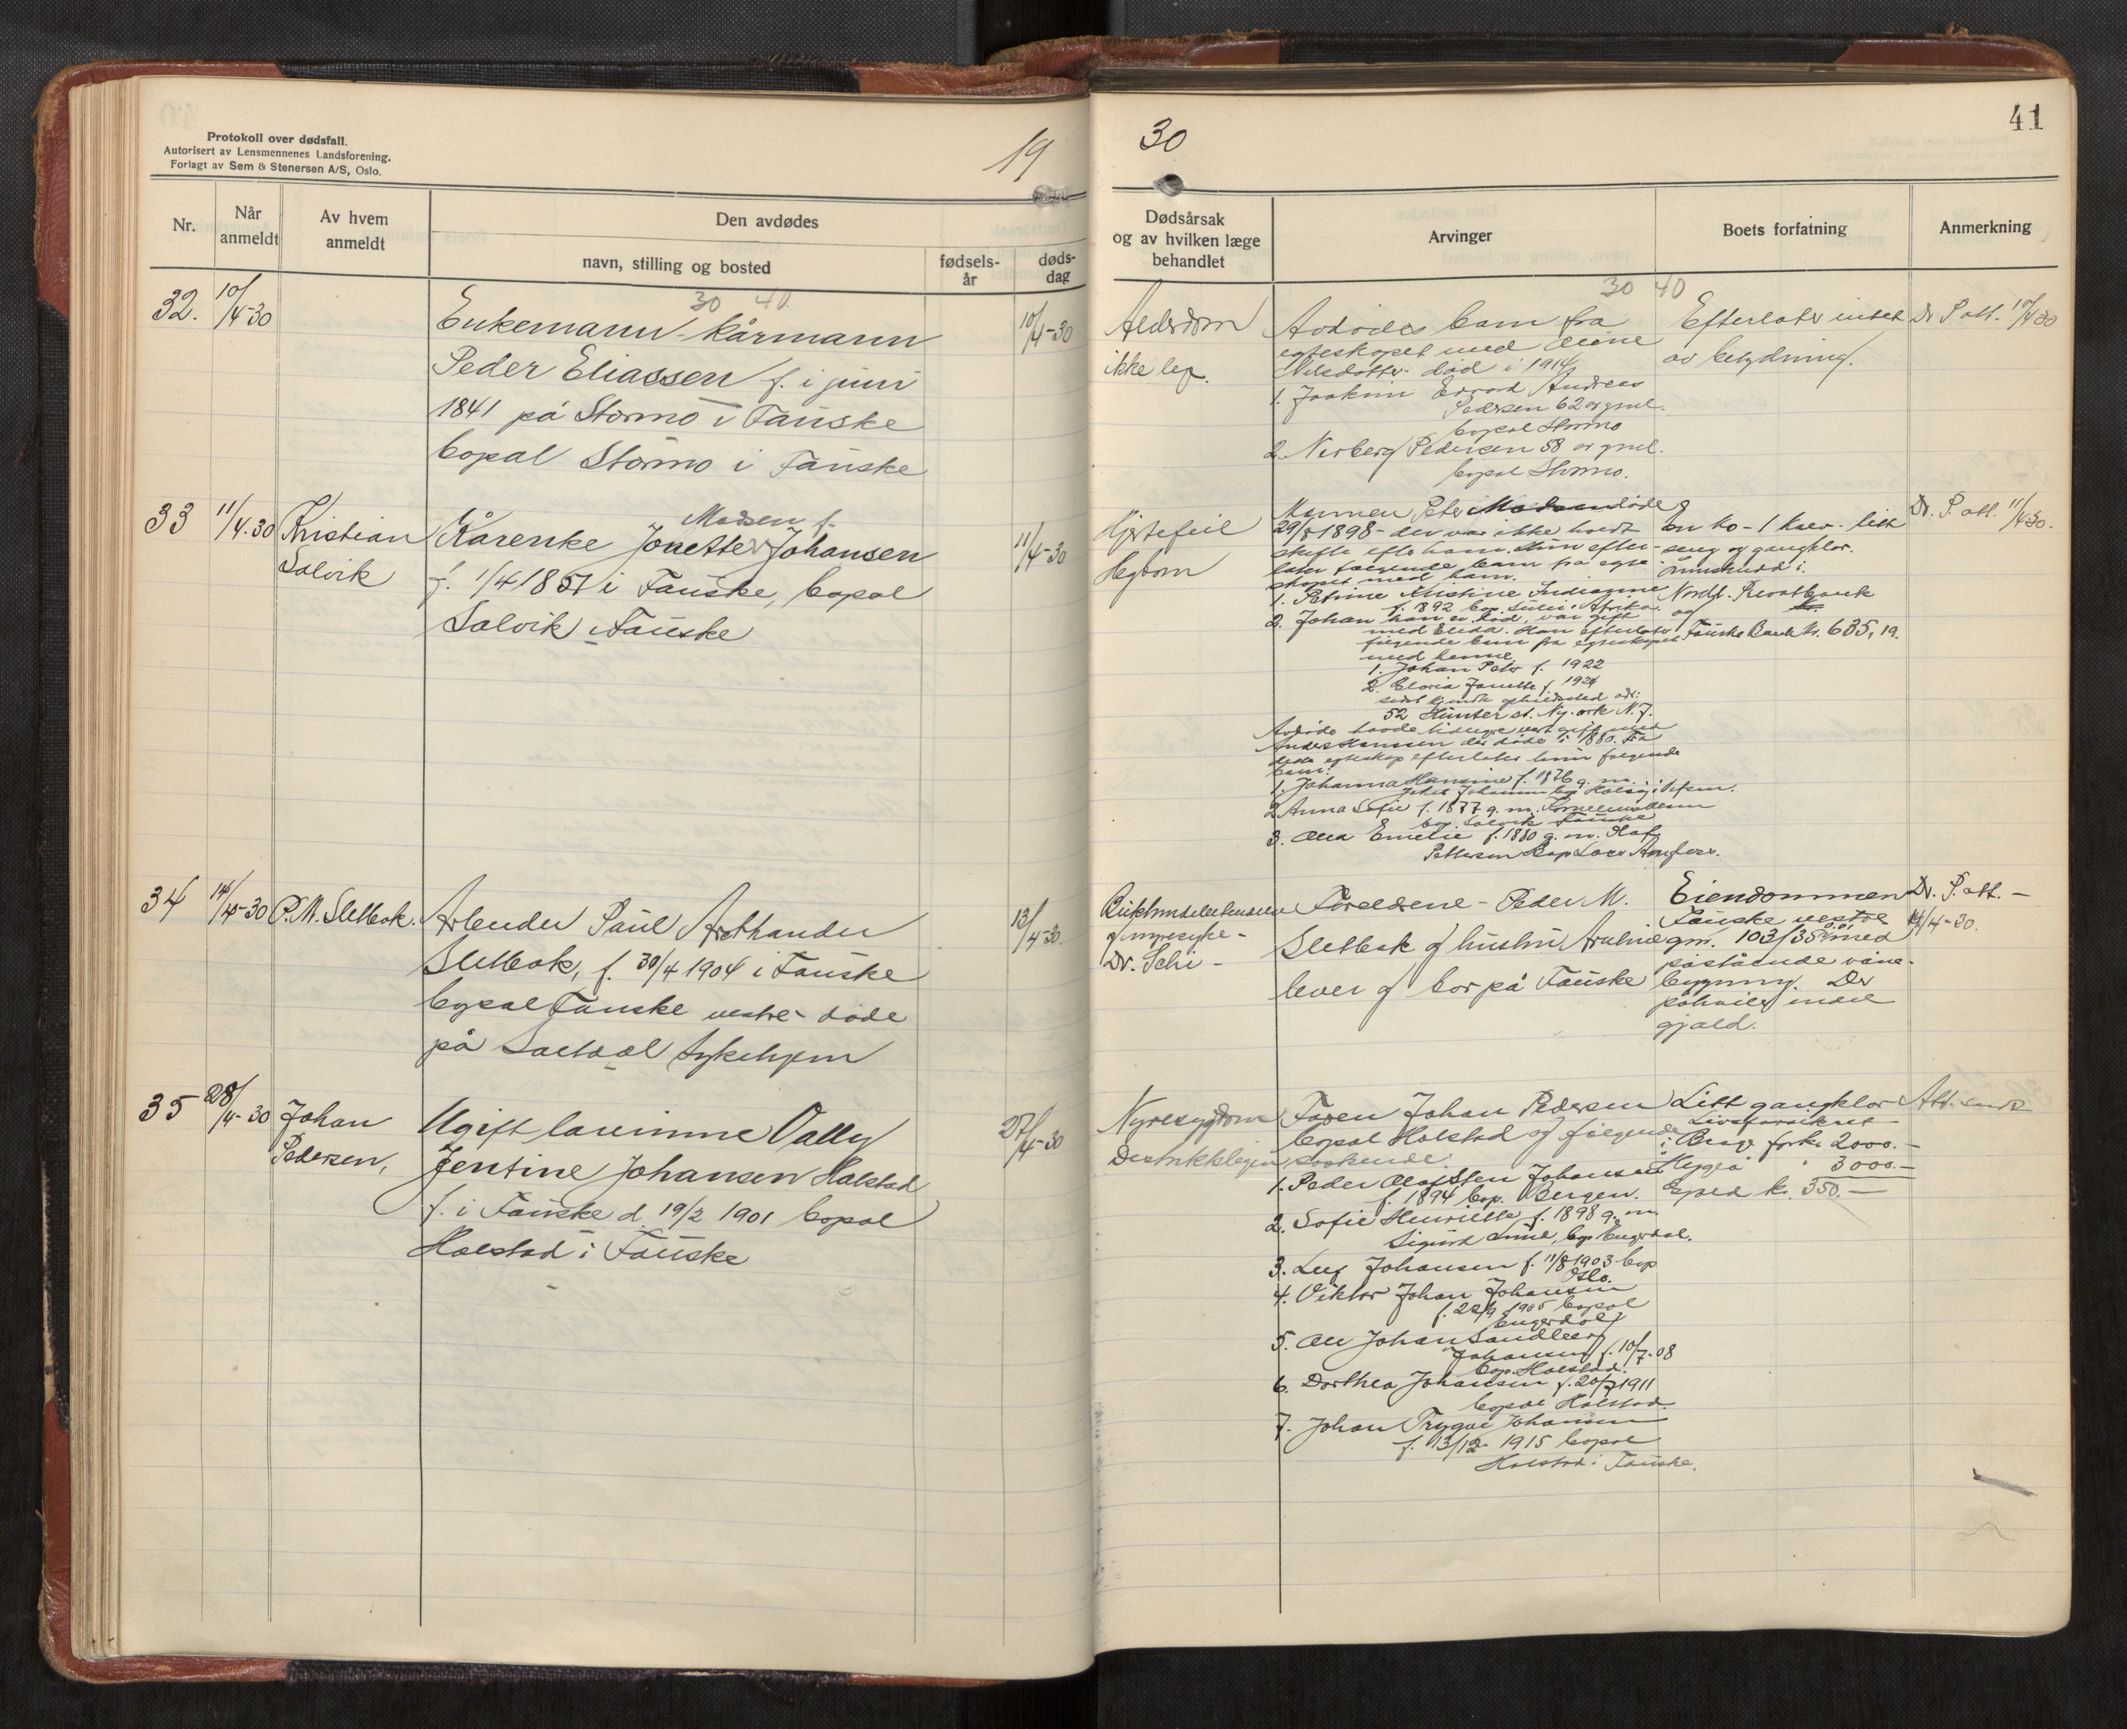 Protokoll over dødsfall.
Autorisert av Lensmennenes Landsforening.
Forlagt av Sem & Stenersen A/S, Oslo.
19
30
41
Nr.
Når
anmeldt
Av hvem
anmeldt
Den avdødes
navn, stilling og bosted
fødsels-
år
døds-
dag
Dødsårsak
og av hvilken læge
behandlet
Arvinger
Boets forfatning
Anmerkning
32.
10/4-30
30 40
Enkemann kårmann
Peder Eliassen f. i juni
1841 på Stormo i Fauske
bopæl Stormo i Fauske
10/4-30
Alderdom
ikke
30 40
Avdødes barn fra
egteskapet med
Nilsdatter død i 1914
1. Joakim Edvard Andreas
Pedersen 62 år gml.
bopæl Stormo
2. Pedersen 58 år gml.
bopæl Stormo.
Efterlater intet
av betydning.
Dr. P. att. 10/4 30
33
11/4.30
Kristian
Salvik
Madsen f.
Kårenke Jonette Johansen
f. 1/4 1857 i Fauske, bopæl
Salvik i Fauske
11/4-30
Hjertefeil
Mannen Peter Madsen døde
29/5 1898 - der var ikke holdt
skifte efter ham. Hun efter-
later følgende barn fra egte-
skapet med ham.
1. Petrine Kristine Indianne
f. 1892 bop. i Afrika og
2. Johan han er død, var gift
med Elida. Han efterlater
følgende barn fra egteskapet
med henne
1. Johan Peter f. 1922
2. Gloria Jonette f. 1924
sidst kjendt opholdssted adr:
52 Hunter st. N. J.
Avdøde hadde tidligere vært gift med
Anders Hanssen der døde i 1880. Fra
dette egteskap efterlater hun følgende
barn:
1. Johanna Hansine f. 1876 g. m.
2. Anna Sofie f. 1877 g. m.
bop. Salvik Fauske
3. Emelie f. 1880 g. m. Olaf
Pettersen bop.
en ko - 1 kalv - litt
seng og gangklær.
Innskudd i
Nordl. Privatbank
Fauske Bank kr. 635,19.
Dr. P. att. 11/4 30.
34
14/4-30
P. M. Sletbak.
Arbeider Paul Arthander
Sletbak, f. 30/4 1904 i Fauske
bopæl Fauske vestre - døde
på Saltdal Sykehjem
13/4-30.
og nyresyke -
Dr. Schi -
Foreldrene - Peder M.
Sletbak og hustru
lever og bor på Fauske
Eiendommen
Fauske vestre
gnr. 103/35 med
påstående våne-
bygning. Der
påhviler endel
gjæld.
Dr. P. att. -
14/4-30.
35
28/4-30
Johan
Pedersen,
Ugift lærerinne Vally
Jentine Johansen Holstad
f. i Fauske d. 19/2 1901 bopæl
Holstad i Fauske
27/4-30
Nyresygdom
Distriktslegen
Faren Johan Pedersen
bopæl Holstad og følgende
søskende.
1. Peder Johansen
f. 1894 bop. Bergen.
2. Sofie Henriette f. 1898 g. m.
Sigurd
3. Leif Johansen f. 11/8 1903 bop
Oslo.
4. Viktor Johan Johansen
f. 22/9 1905 bopæl
5. Johan
Johansen f. 10/7-08
bop. Holstad.
6. Dorthea Johansen f. 20/7 1911
bopæl Holstad.
7. Johan Trygve Johansen
f. 13/12 1915 bopæl
Holstad i Fauske.
Litt gangklær
Livsforsikret
i Brage for kr. 2000.-
Hygea " 3000.-
kr. 350.-
Att. sendt